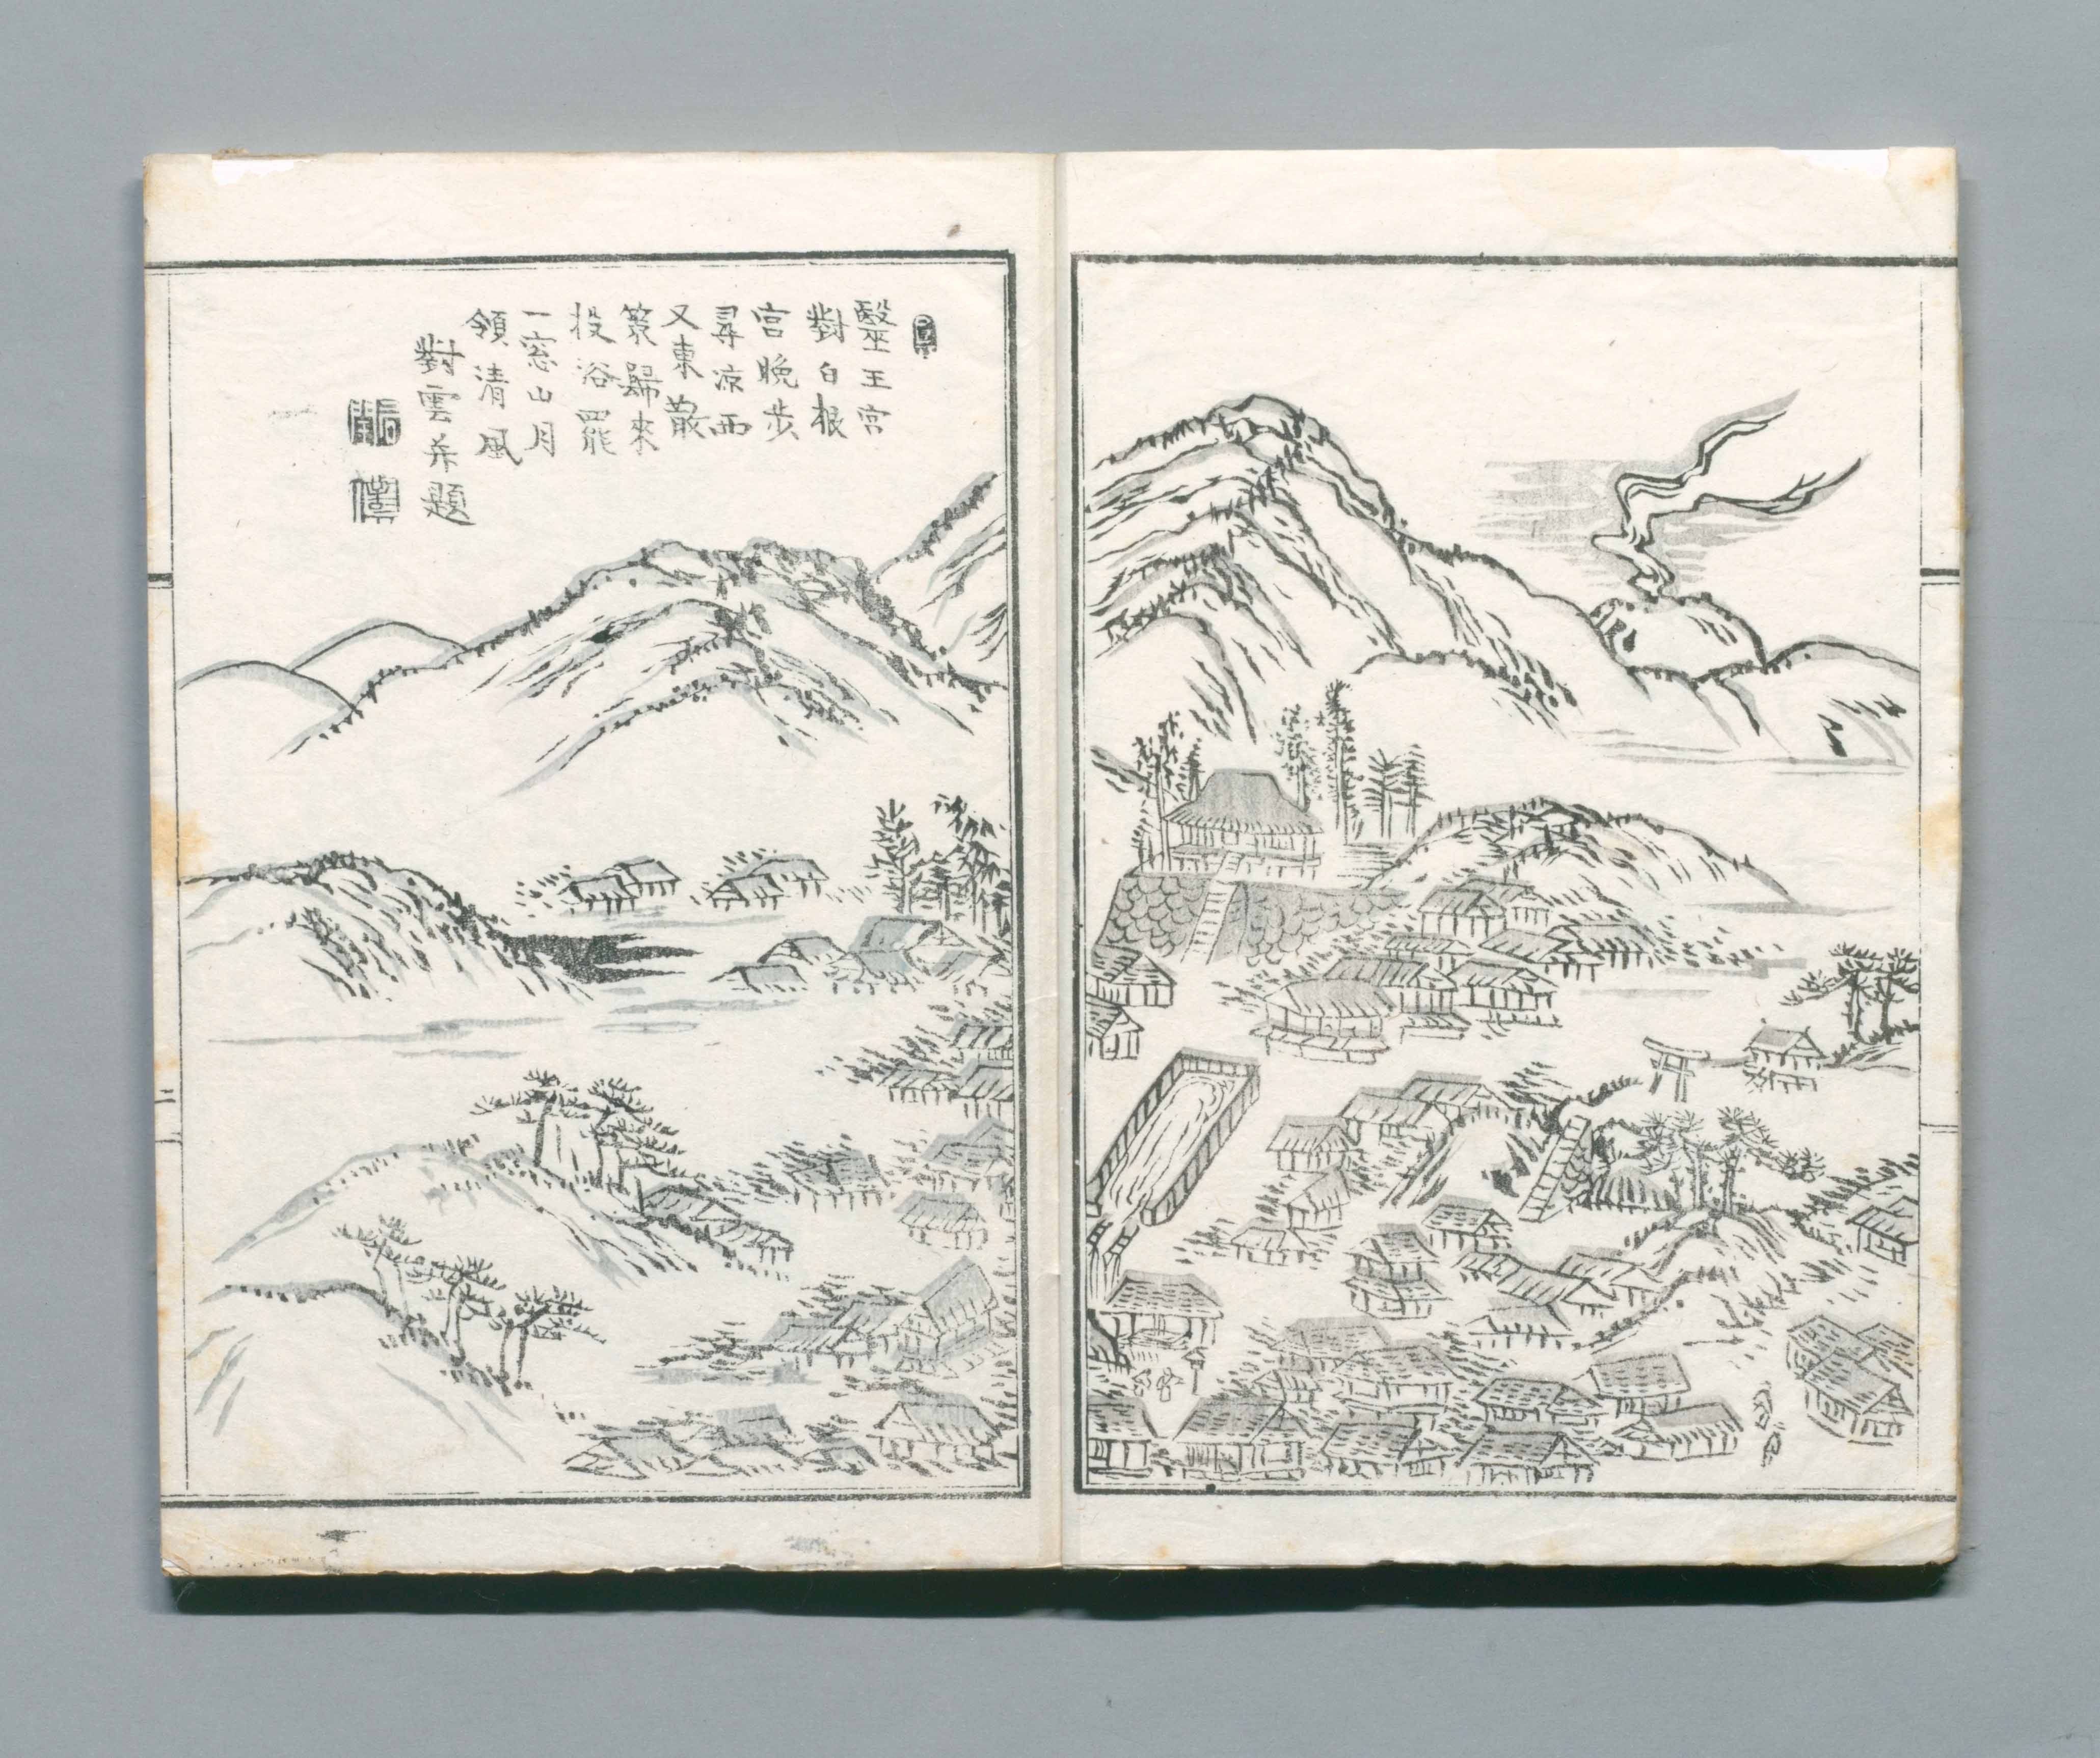 醫王宮
對白根
宮晩歩
尋凉西
又東散
策歸來
投浴罷
一窓山月
領清風
對雲題
二